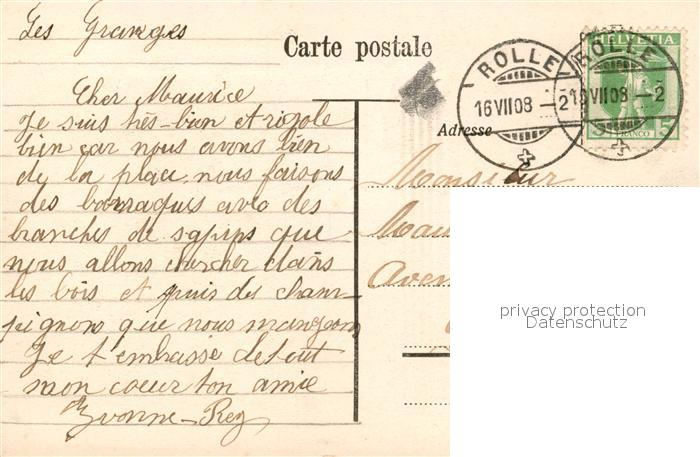 Les Granges
Carte postale
HELVETIA
ROLLE
16 VII 08 — 2
ROLLE
16 VII 08 — 2
FRANCO 5
Adresse
Cher Maurice
Je suis très-bien et rigole
bien car nous avons bien
de la place nous faisons
des barraques avec des
branches de sapins que
nous allons chercher dans
les bois et puis des cham-
pignons que nous mangeons
Je t'embasse de tout
mon coeur ton amie
Yvonne-Rey
Monsieur
Mau
Aven
privacy protection
Datenschutz